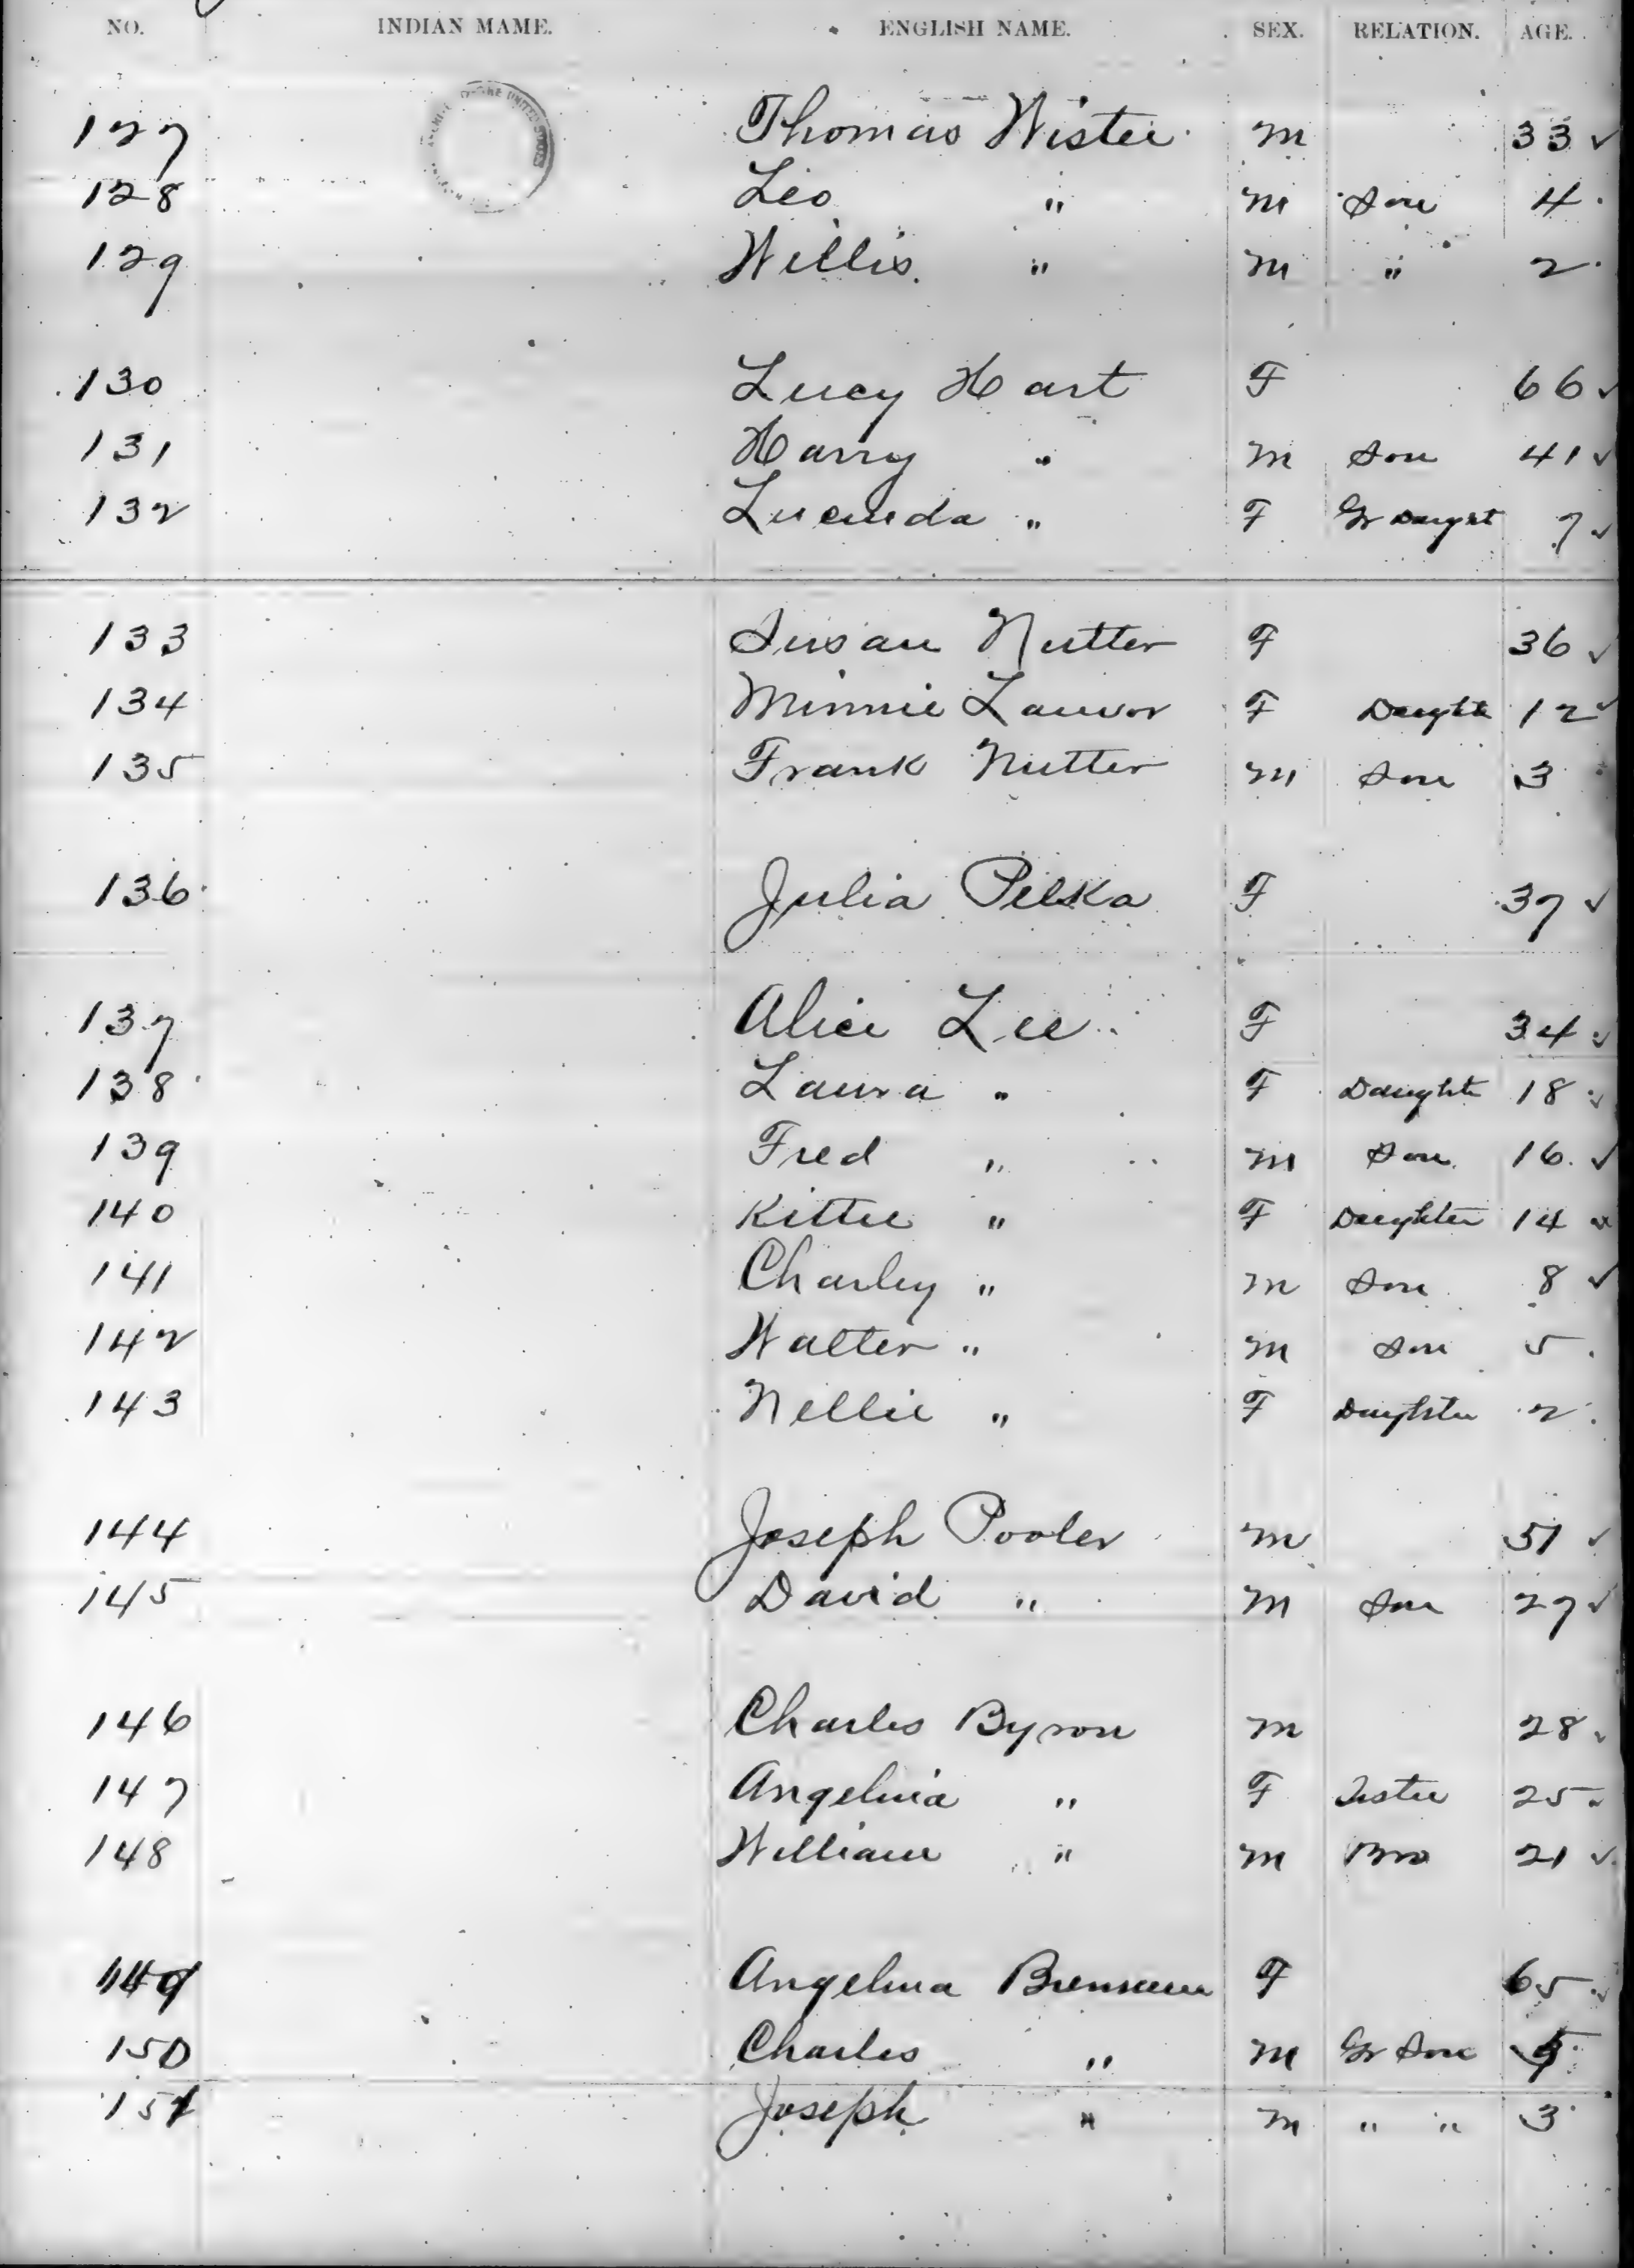 NO. INDIAN MAME. ENGLISH NAME. SEX. RELATION. AGE.
127 Thomas Wister M 33 ✓
128 Leo " M Son 4
129 Willis " M " 2
130 Lucy Hart F 66 ✓
131 Harry " M Son 41 ✓
132 Lucinda " F Gr Daught 7 ✓
133 Susan Nutter F 36 ✓
134 Minnie F Daughte 12 ✓
135 Frank Nutter M Son 3
136 Julia Pelka F 37 ✓
137 Alice Lee F 34 ✓
138 Laura " F Daughte 18 ✓
139 Fred " M Son 16 ✓
140 Kittie " F Daughter 14
141 Charley " M Son 8 ✓
142 Walter " M Son 5
143 Nellie " F Daughter 2
144 Joseph Pooler M 51 ✓
145 David " M Son 27 ✓
146 Charles Byron M 28 ✓
147 Angelina " F Sister 25
148 William " M Bro 21 ✓
149 Angelina Brennan F 65 ✓
150 Charles " M Gr Son
151 Joseph " M " " 3